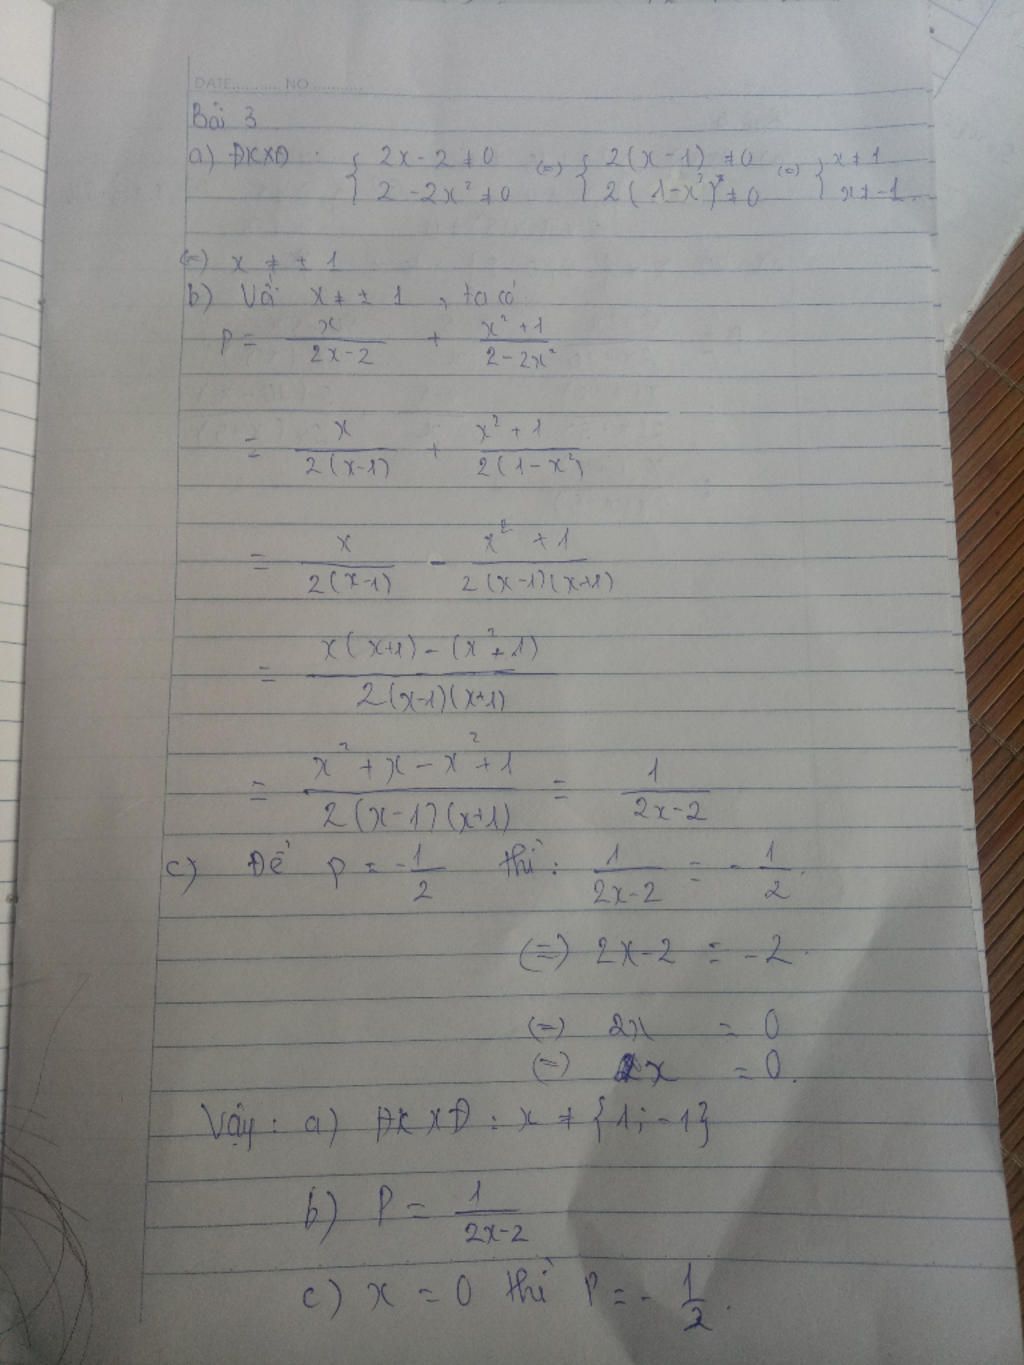 DATE............ NO.............
Bài 3
a) ĐKXĐ : { 2x-2 ≠ 0 (=) { 2(x-1) ≠ 0 (=) { x ≠ 1
{ 2 - 2x² ≠ 0 { 2(1-x²) ≠ 0 { x ≠ -1.
(=) x ≠ ± 1
b) Với x ≠ ± 1 , ta có
P = x/(2x-2) + (x²+1)/(2-2x²)
= x/(2(x-1)) + (x²+1)/(2(1-x²))
= x/(2(x-1)) - (x²+1)/(2(x-1)(x+1))
= (x(x+1) - (x²+1))/(2(x-1)(x+1))
= (x²+x-x²+1)/(2(x-1)(x+1)) = 1/(2x-2)
c) Để P = -1/2 thì : 1/(2x-2) = -1/2.
(=) 2x-2 = -2.
(=) 2x = 0
(=) x = 0.
Vậy : a) ĐKXĐ : x ≠ {1; -1}
b) P = 1/(2x-2)
c) x = 0 thì P = -1/2.